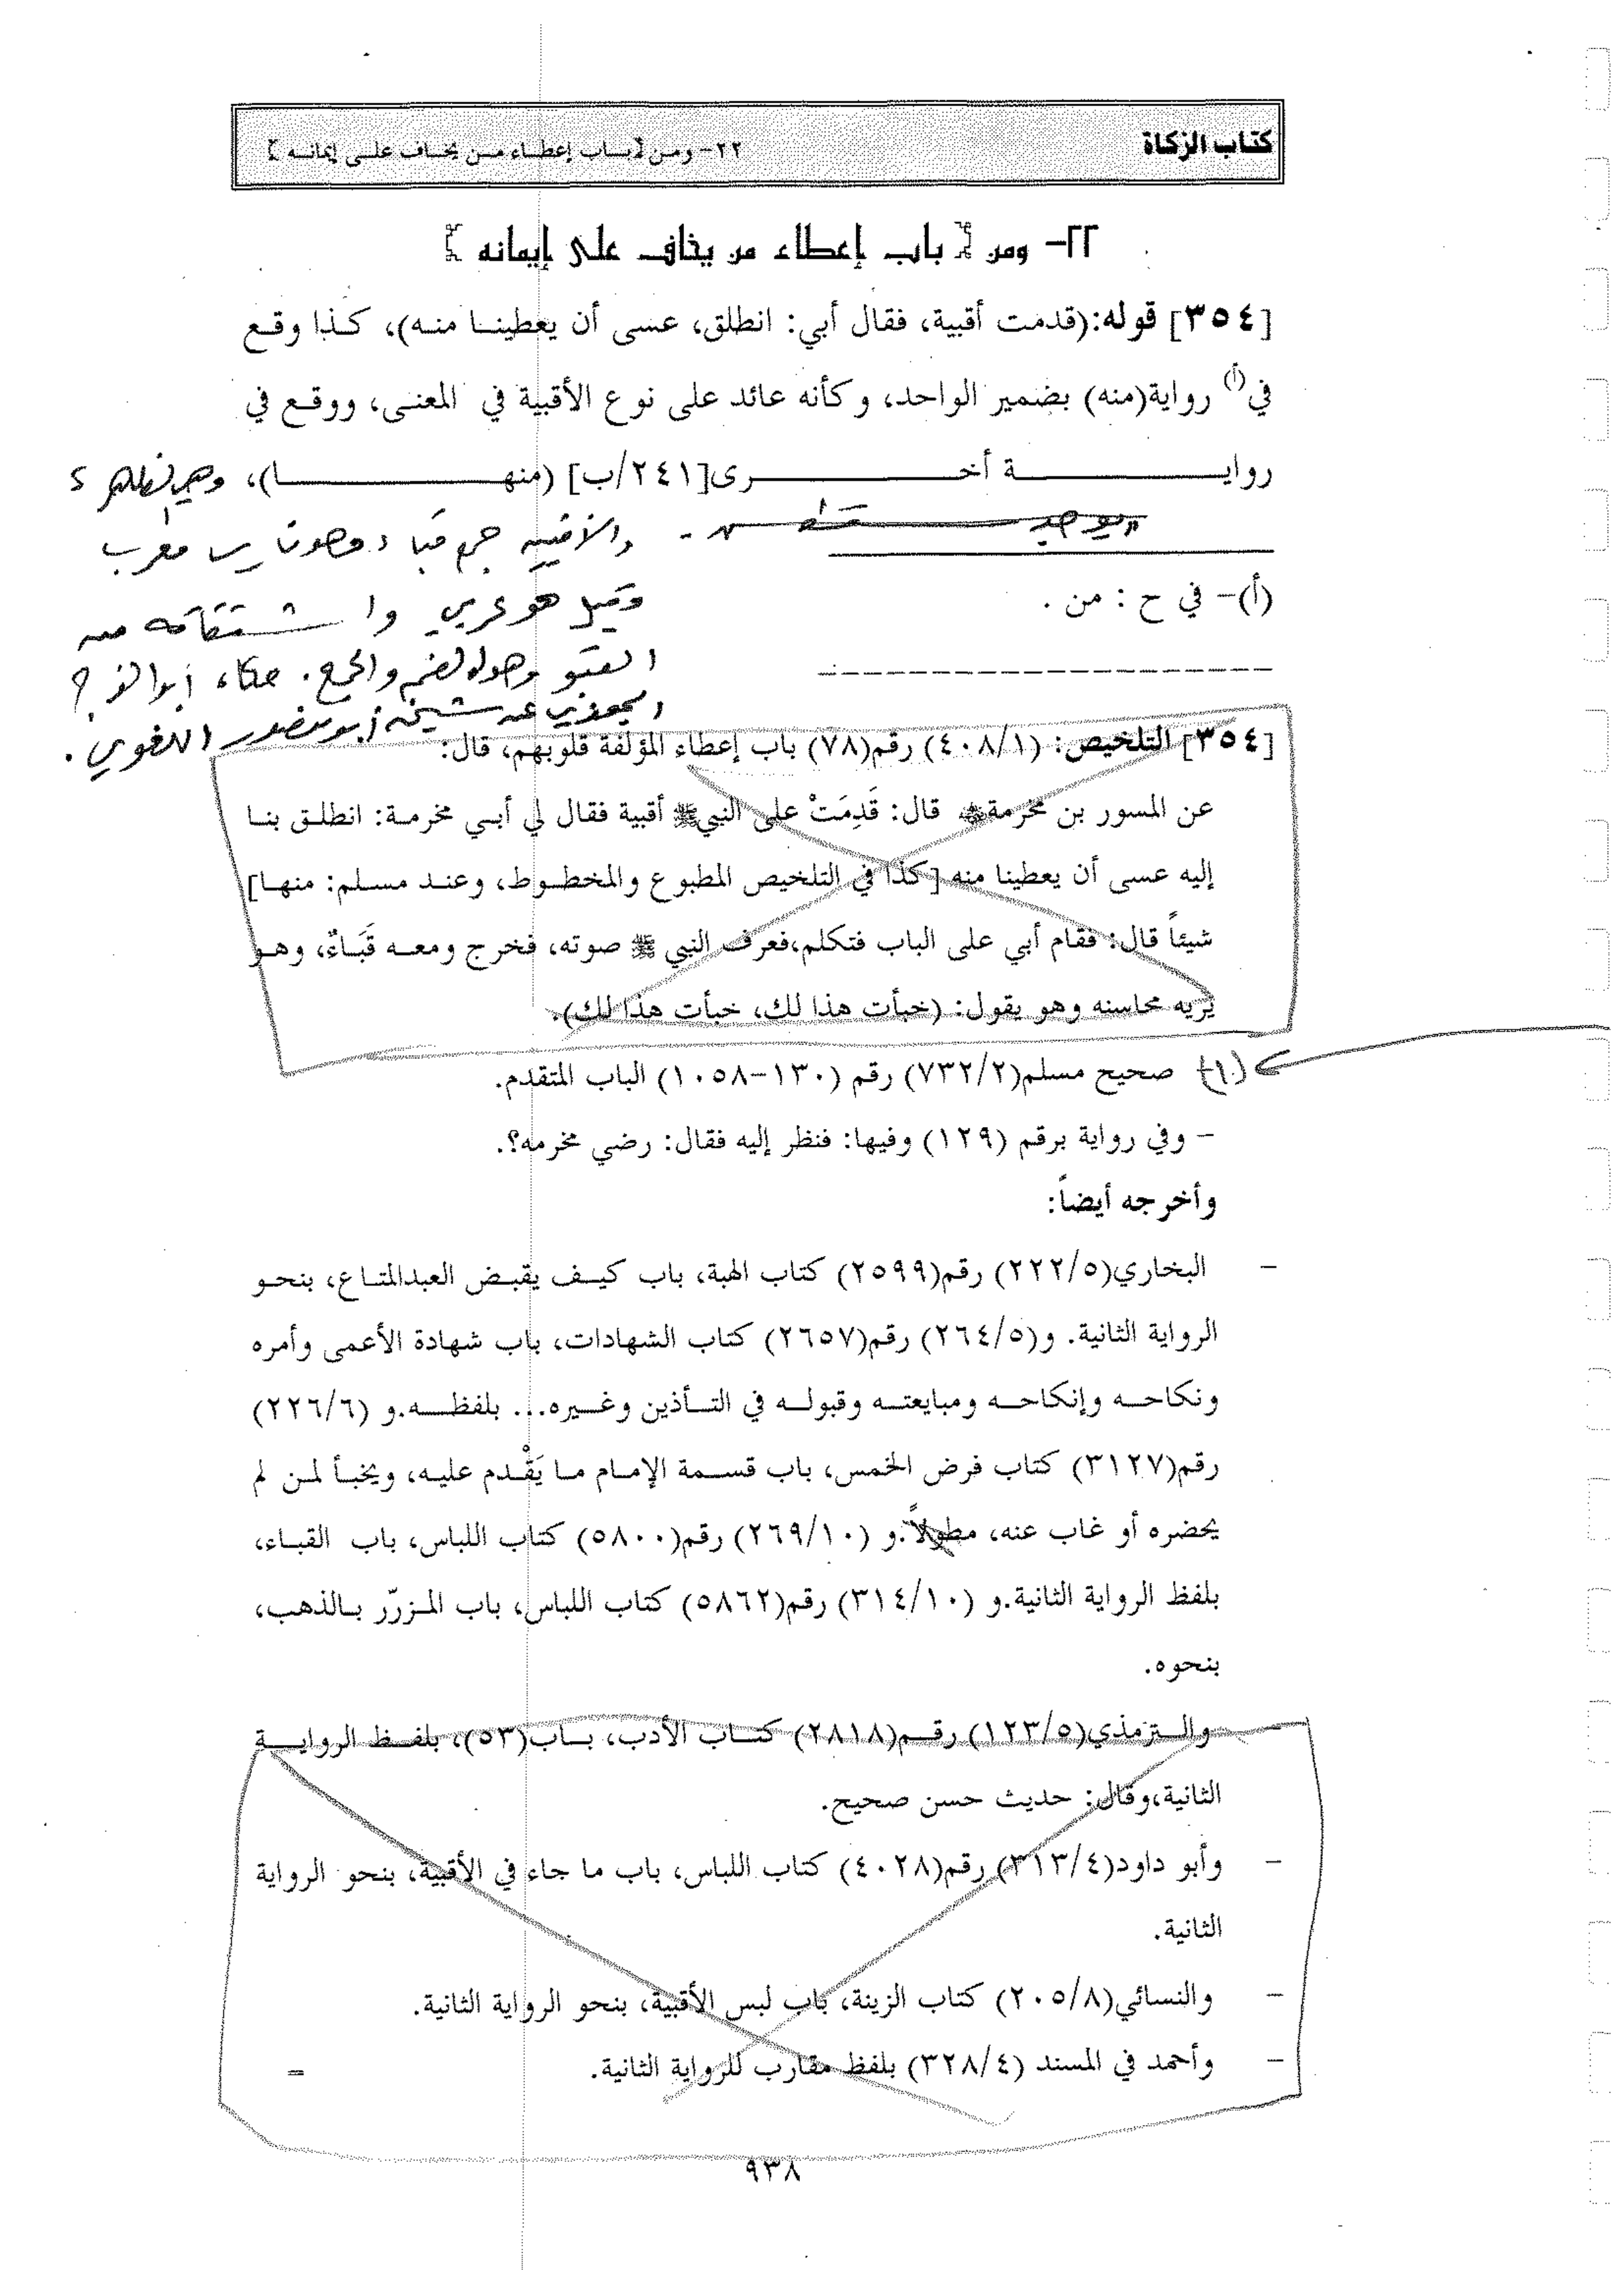 كتاب الزكاة
٢٢- ومن [باب إعطاء من يخاف على إيمانه]
٢٢- ومن [باب إعطاء من يخاف على إيمانه]
[٣٥٤] قوله:(قدمت أقبية، فقال أبي: انطلق، عسى أن يعطينا منه)، كذا وقع
في(أ) رواية(منه) بضمير الواحد، وكأنه عائد على نوع الأقبية في المعنى، ووقع في
رواية أخرى[٢٤١/ب] (منها)، وهي
والأقبية جمع قباء وهو معرب
وقيل هو عربي واشتقاقه من
القبو وهو الضم والجمع. حكاه أبو الفرج
الجوزي عن شيخه أبو منصور اللغوي.
(أ)- في ح : من .
[٣٥٤] التلخيص: (٤٠٨/١) رقم(٧٨) باب إعطاء المؤلفة قلوبهم، قال:
عن المسور بن مخرمة قال: قَدِمَتْ على النبي ﷺ أقبية فقال لي أبي مخرمة: انطلق بنا
إليه عسى أن يعطينا منه [كذا في التلخيص المطبوع والمخطوط، وعند مسلم: منها]
شيئاً قال: فقام أبي على الباب فتكلم،فعرف النبي ﷺ صوته، فخرج ومعه قَبَاءٌ، وهو
يُريه محاسنه وهو يقول: (خبأت هذا لك، خبأت هذا لك).
(١) صحيح مسلم(٧٣٢/٢) رقم (١٣٠-١٠٥٨) الباب المتقدم.
- وفي رواية برقم (١٢٩) وفيها: فنظر إليه فقال: رضي مخرمه؟.
وأخرجه أيضاً:
- البخاري(٢٢٢/٥) رقم(٢٥٩٩) كتاب الهبة، باب كيف يقبض العبدالمتاع، بنحو
الرواية الثانية. و(٢٦٤/٥) رقم(٢٦٥٧) كتاب الشهادات، باب شهادة الأعمى وأمره
ونكاحه وإنكاحه ومبايعته وقبوله في التأذين وغيره... بلفظه.و (٢٢٦/٦)
رقم(٣١٢٧) كتاب فرض الخمس، باب قسمة الإمام ما يَقْدم عليه، ويخبأ لمن لم
يحضره أو غاب عنه، مطولاً.و (٢٦٩/١٠) رقم(٥٨٠٠) كتاب اللباس، باب القباء،
بلفظ الرواية الثانية.و (٣١٤/١٠) رقم(٥٨٦٢) كتاب اللباس، باب المزرّر بالذهب،
بنحوه.
- والترمذي(١٢٣/٥) رقم(٢٨١٨) كتاب الأدب، باب(٥٣)، بلفظ الرواية
الثانية،وقال: حديث حسن صحيح.
- وأبو داود(٣١٣/٤) رقم(٤٠٢٨) كتاب اللباس، باب ما جاء في الأقبية، بنحو الرواية
الثانية.
- والنسائي(٢٠٥/٨) كتاب الزينة، باب لبس الأقبية، بنحو الرواية الثانية.
- وأحمد في المسند (٣٢٨/٤) بلفظ مقارب للرواية الثانية. =
٩٣٨